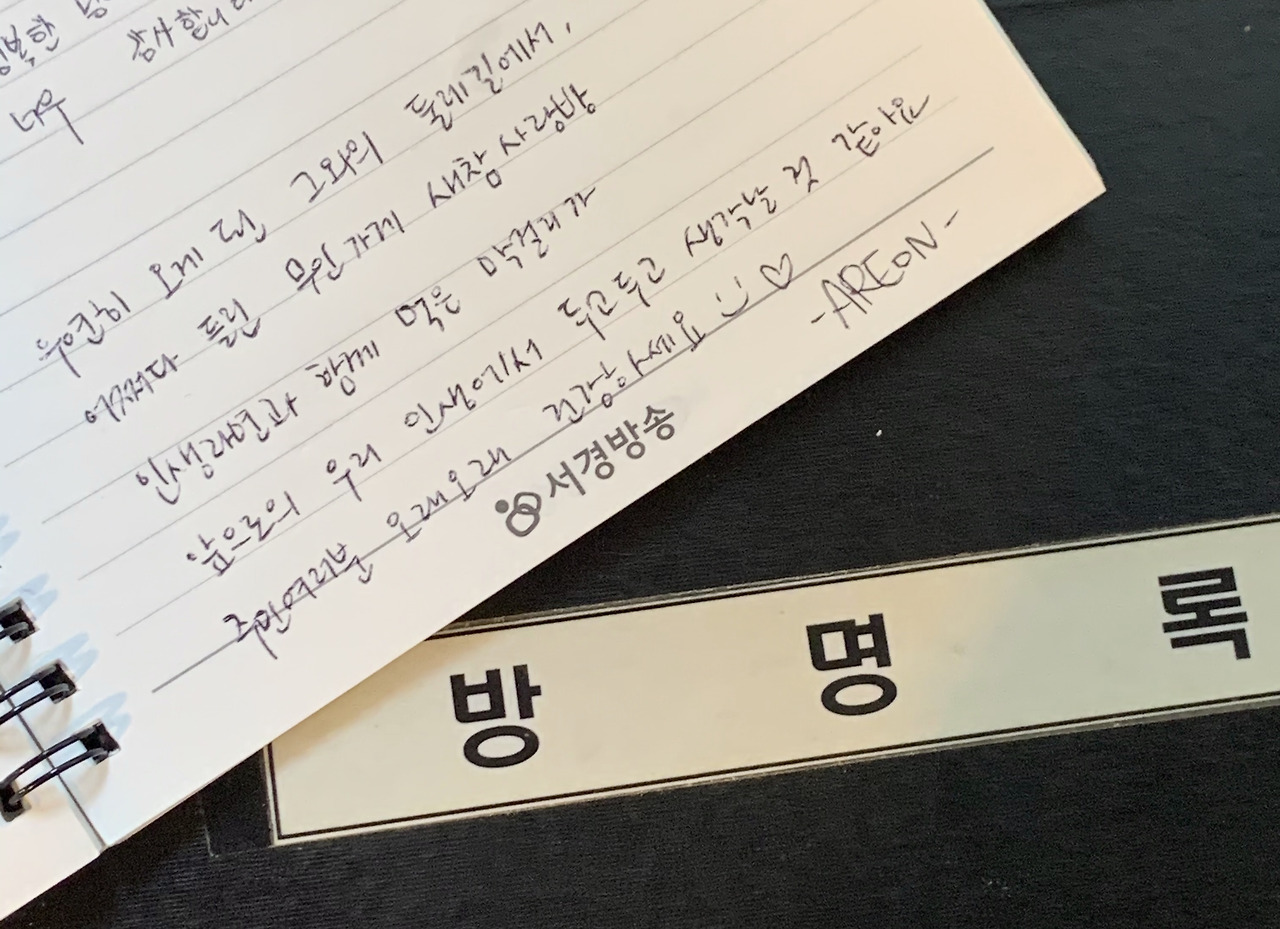 감사합니다
너무
우연히 오게 된 그와의 둘레길에서,
어쩌다 들린 무인가게 새참사랑방
인생라면과 함께 먹은 막걸리가
앞으로의 우리 인생에서 두고두고 생각날 것 같아요
주인여러분 오래오래 건강하세요 :) ♡
-AREON-
서경방송
방명록